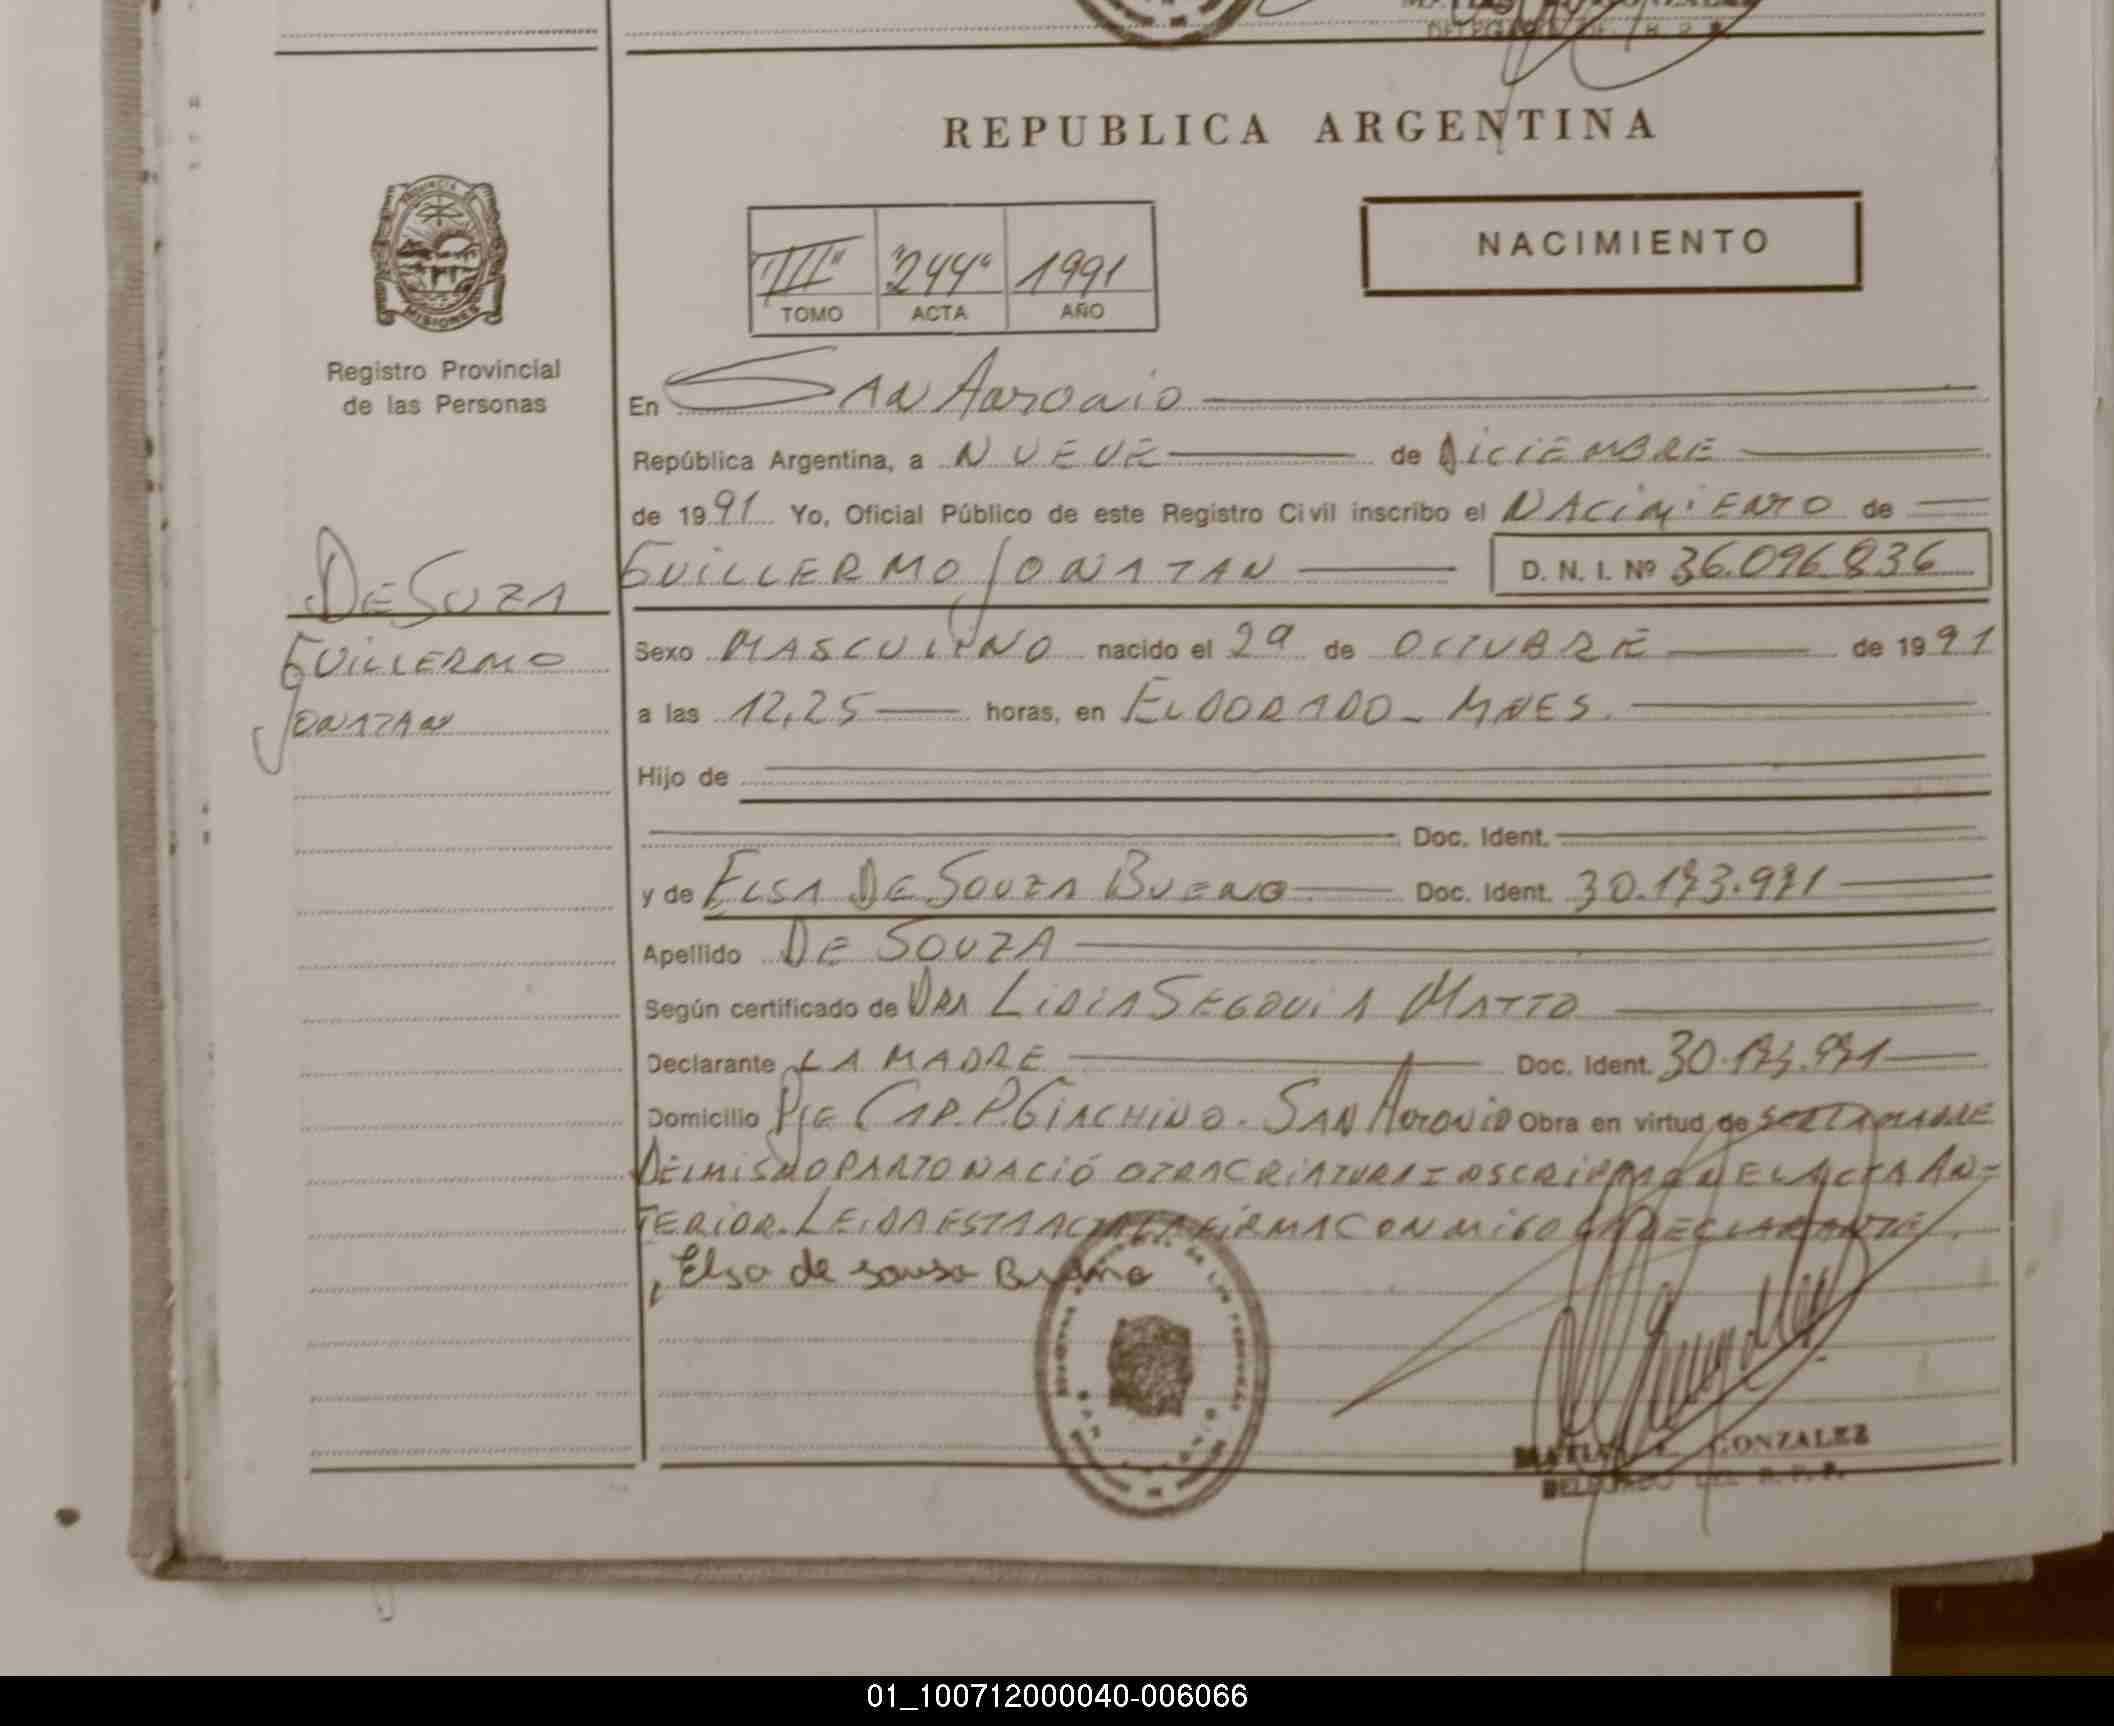 REPUBLICA ARGENTINA
NACIMIENTO
"III" "244" 1991
TOMO ACTA AÑO
MISIONES
Registro Provincial
de las Personas
En SAN ANTONIO
República Argentina, a NUEVE de DICIEMBRE
de 1991 Yo, Oficial Público de este Registro Civil inscribo el NACIMIENTO de
GUILLERMO JONATAN D. N. I. Nº 36.096.836
DE SUZA
GUILLERMO
JONATAN
Sexo MASCULINO nacido el 29 de OCTUBRE de 1991
a las 12,25 horas, en ELDORADO - MNES.
Hijo de
Doc. Ident.
y de ELSA DE SOUZA BUENO Doc. Ident.
Apellido DE SOUZA
Según certificado de DRA LIDIA SEGOVIA MATTO
Declarante LA MADRE Doc. Ident.
Domicilio PJE CAP. P. GIACHINO - SAN ANTONIO Obra en virtud de
DEL MISMO PARTO NACIÓ OTRA CRIATURA INSCRIPTA EN EL ACTA AN-
TERIOR. LEIDA ESTA ACTA LA FIRMA CONMIGO LA DECLARANTE.
Elsa de sousa Bueno
GONZALEZ
DELEGADO DEL R. P. P.
01_100712000040-006066